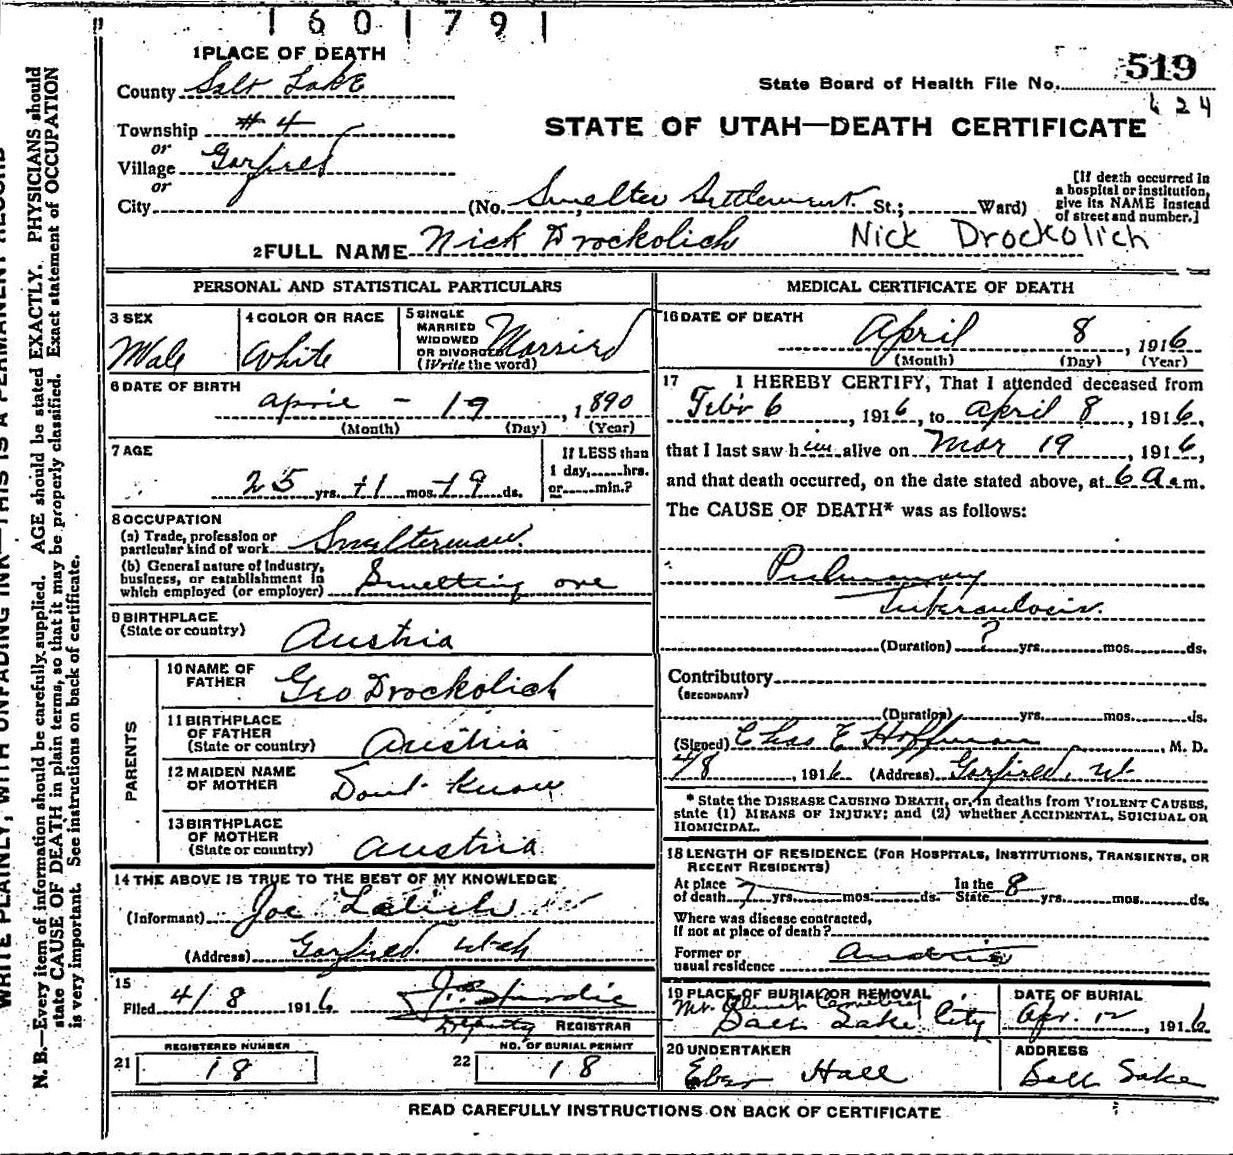 1601791
1 PLACE OF DEATH
County Salt Lake
State Board of Health File No. 519
424
Township #4
or
Village Garfield
or
STATE OF UTAH—DEATH CERTIFICATE
City (No. Smelter Settlement St.; Ward)
[If death occurred in
a hospital or institution,
give its NAME instead
of street and number.]
2 FULL NAME Nick Drockolich Nick Drockolich
PERSONAL AND STATISTICAL PARTICULARS
3 SEX
Male
4 COLOR OR RACE
White
5 SINGLE
MARRIED
WIDOWED
OR DIVORCED
(Write the word)
Married
6 DATE OF BIRTH
April - 19, 1890
(Month) (Day) (Year)
7 AGE
25 yrs. 11 mos. 19 ds.
If LESS than
1 day, hrs.
or min.?
8 OCCUPATION
(a) Trade, profession or
particular kind of work Smelterman
(b) General nature of Industry,
business, or establishment in
which employed (or employer) Smelting ore
9 BIRTHPLACE
(State or country) Austria
PARENTS
10 NAME OF
FATHER Geo Drockolich
11 BIRTHPLACE
OF FATHER
(State or country) Austria
12 MAIDEN NAME
OF MOTHER Dont Know
13 BIRTHPLACE
OF MOTHER
(State or country) Austria
14 THE ABOVE IS TRUE TO THE BEST OF MY KNOWLEDGE
(Informant) Joe
(Address) Garfield Utah
15
Filed 4/8 1916
Deputy REGISTRAR
REGISTERED NUMBER
21 18
NO. OF BURIAL PERMIT
22 18
MEDICAL CERTIFICATE OF DEATH
16 DATE OF DEATH
April 8, 1916
(Month) (Day) (Year)
17 I HEREBY CERTIFY, That I attended deceased from
Feb'r 6, 1916, to April 8, 1916,
that I last saw him alive on Mar 19, 1916,
and that death occurred, on the date stated above, at 6 a.m.
The CAUSE OF DEATH* was as follows:
Pulmonary
Tuberculosis.
(Duration) ? yrs. mos. ds.
Contributory
(SECONDARY)
(Duration) yrs. mos. ds.
(Signed) Chas E Hoffman, M. D.
4/8, 1916 (Address) Garfield, Ut
* State the DISEASE CAUSING DEATH, or, in deaths from VIOLENT CAUSES,
state (1) MEANS OF INJURY; and (2) whether ACCIDENTAL, SUICIDAL OR
HOMICIDAL.
18 LENGTH OF RESIDENCE (FOR HOSPITALS, INSTITUTIONS, TRANSIENTS, OR
RECENT RESIDENTS)
At place
of death 7 yrs. mos. ds.
In the
State 8 yrs. mos. ds.
Where was disease contracted,
if not at place of death?
Former or
usual residence Austria
19 PLACE OF BURIAL OR REMOVAL
Mt. Olivet Cemetery
Salt Lake City
DATE OF BURIAL
Apr. 12, 1916
20 UNDERTAKER
Eber Hall
ADDRESS
Salt Lake
READ CAREFULLY INSTRUCTIONS ON BACK OF CERTIFICATE
WRITE PLAINLY, WITH UNFADING INK—THIS IS A PERMANENT RECORD
N. B.—Every item of information should be carefully supplied. AGE should be stated EXACTLY. PHYSICIANS should
state CAUSE OF DEATH in plain terms, so that it may be properly classified. Exact statement of OCCUPATION
is very important. See instructions on back of certificate.